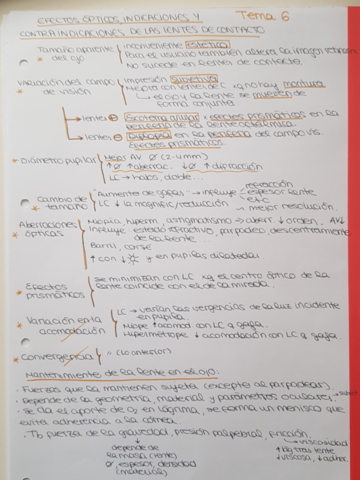 EFECTOS ÓPTICOS, INDICACIONES Y Tema 6
CONTRAINDICACIONES DE LAS LENTES DE CONTACTO
Tamaño aparente del ojo
Inconveniente estético
Para el usuario también altera la imagen retiniana
No sucede en lentes de contacto.
Variación del campo de visión
Impresión subjetiva
Mejora con lentes de C. xq no hay montura
el ojo y la lente se mueven de forma conjunta
lentes ⊕ Escotoma anular + efectos prismáticos en la periferia de la lente oftálmica.
lentes ⊖ Diplopia en la periferia del campo vis.
Efectos prismáticos.
Diámetro pupilar
Mejor AV Ø (2-4mm)
↑Ø ↑ aberrac. ↓Ø ↑ difracción
LC → halos, doble...
Cambio de tamaño
Aumento de gafas → influye refracción
espesor lente
etc
LC ↓ la magnific/reducción → mejor resolución
Aberraciones ópticas
Miopía, hiperm, astigmatismo → aberr. ↓ orden. AV↓
Influye estado refractivo, parpadeo, descentramiento de la lente...
Barril, corsé
↑ con ↓ y en pupilas dilatadas
Efectos prismáticos
Se minimizan con LC xq el centro óptico de la lente coincide con el de la mirada.
Variación en la acomodación
LC → varían las vergencias de la luz incidente en pupila
Miope ↑ acomod. con LC q gafa.
Hipermétrope ↓ acomodación con LC q gafa
Convergencia " (lo anterior)
Mantenimiento de la lente en el ojo:
· Fuerzas que la mantienen sujeta (excepto al parpadear).
· Depende de la geometría, material y parámetros oculares
· Se da el aporte de O2 en lágrima, se forma un menisco que evita adherencia a la córnea.
· Tb fuerza de la gravedad, presión palpebral, función
depende de la masa (lente)
Ø, espesor, densidad (material)
viscosidad
↑ lág tras lente
↓ viscosa, ↓ adher.